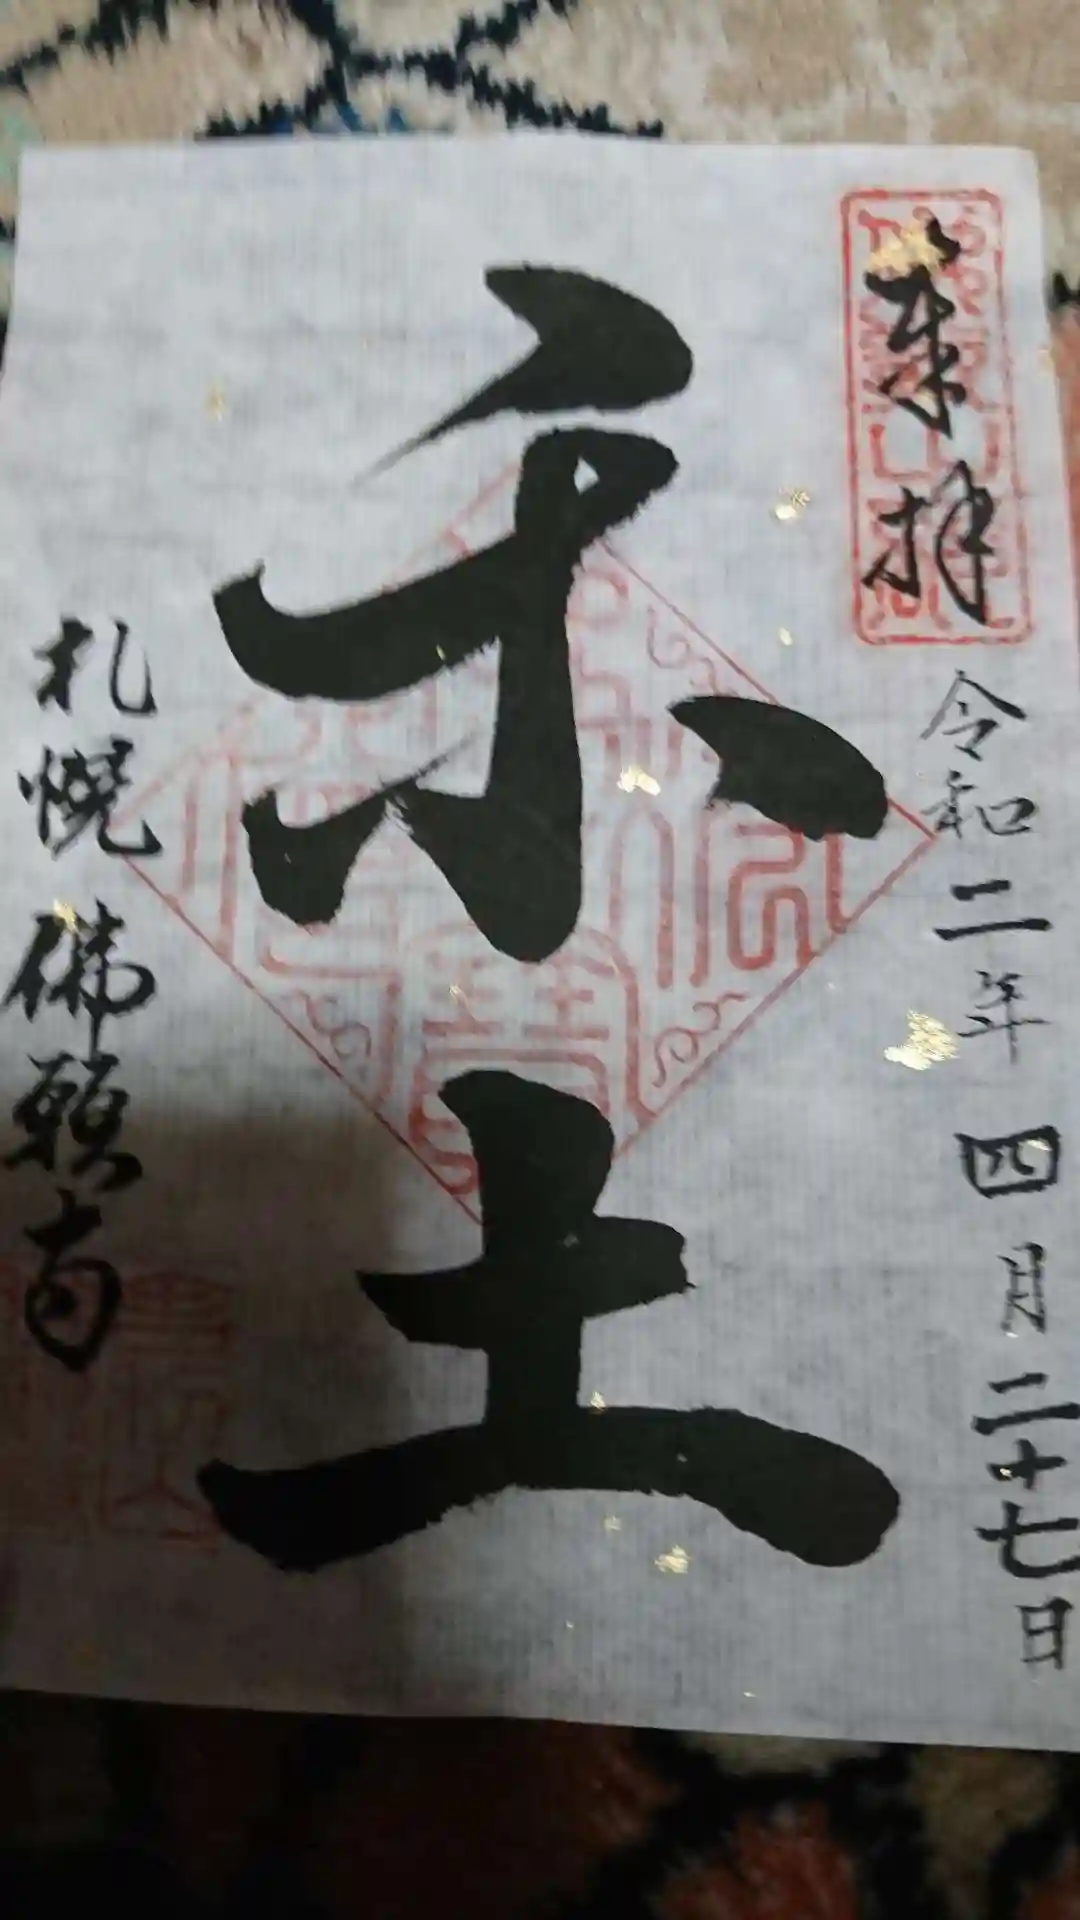 奉拝
令和二年 四月二十七日
楽土
札幌 佛願寺